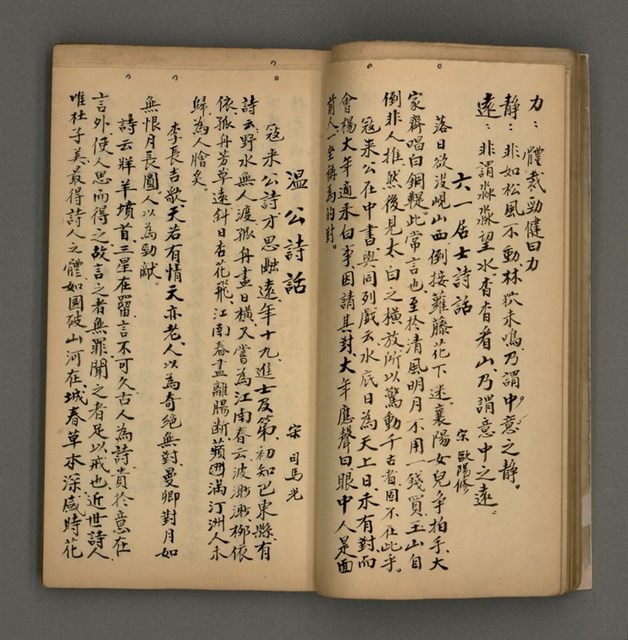 力：體裁勁健曰力
靜：非如松風不動林狖未鳴乃謂中意之靜。
遠：非謂淼淼望水杳杳看山乃謂意中之遠。
六一居士詩話
宋 歐陽修
落日欲沒峴山西倒接䍦藤花下迷襄陽女兒爭拍手大
家齊唱白銅鞮此常言也至於清風明月不用一錢買玉山自
倒非人推然後見太白之橫放所以驚動千古者固不在此乎
寇来公在中書與同列戲云水底日為天上日未有對而
會楊大年適来白事因請其對大年應聲曰眼中人是面
前人一坐稱為的對。
溫公詩話
宋 司馬光
寇来公詩才思融遠年十九進士及第初知巴東縣有
詩云野水無人渡孤舟盡日橫又嘗為江南春云波渺渺柳依
依孤舟芳草遠斜日杏花飛江南春盡離腸斷蘋洲滿汀洲人未
歸為人膾炙
李長吉歌天若有情天亦老人以為奇絕無對曼卿對月如
無恨月長圓人以為勁敵
詩云牂羊墳首三星在罶言不可久古人為詩貴於意在
言外使人思而得之故言之者無罪聞之者足以戒也近世詩人
唯杜子美最得詩人之體如國破山河在城春草木深感時花